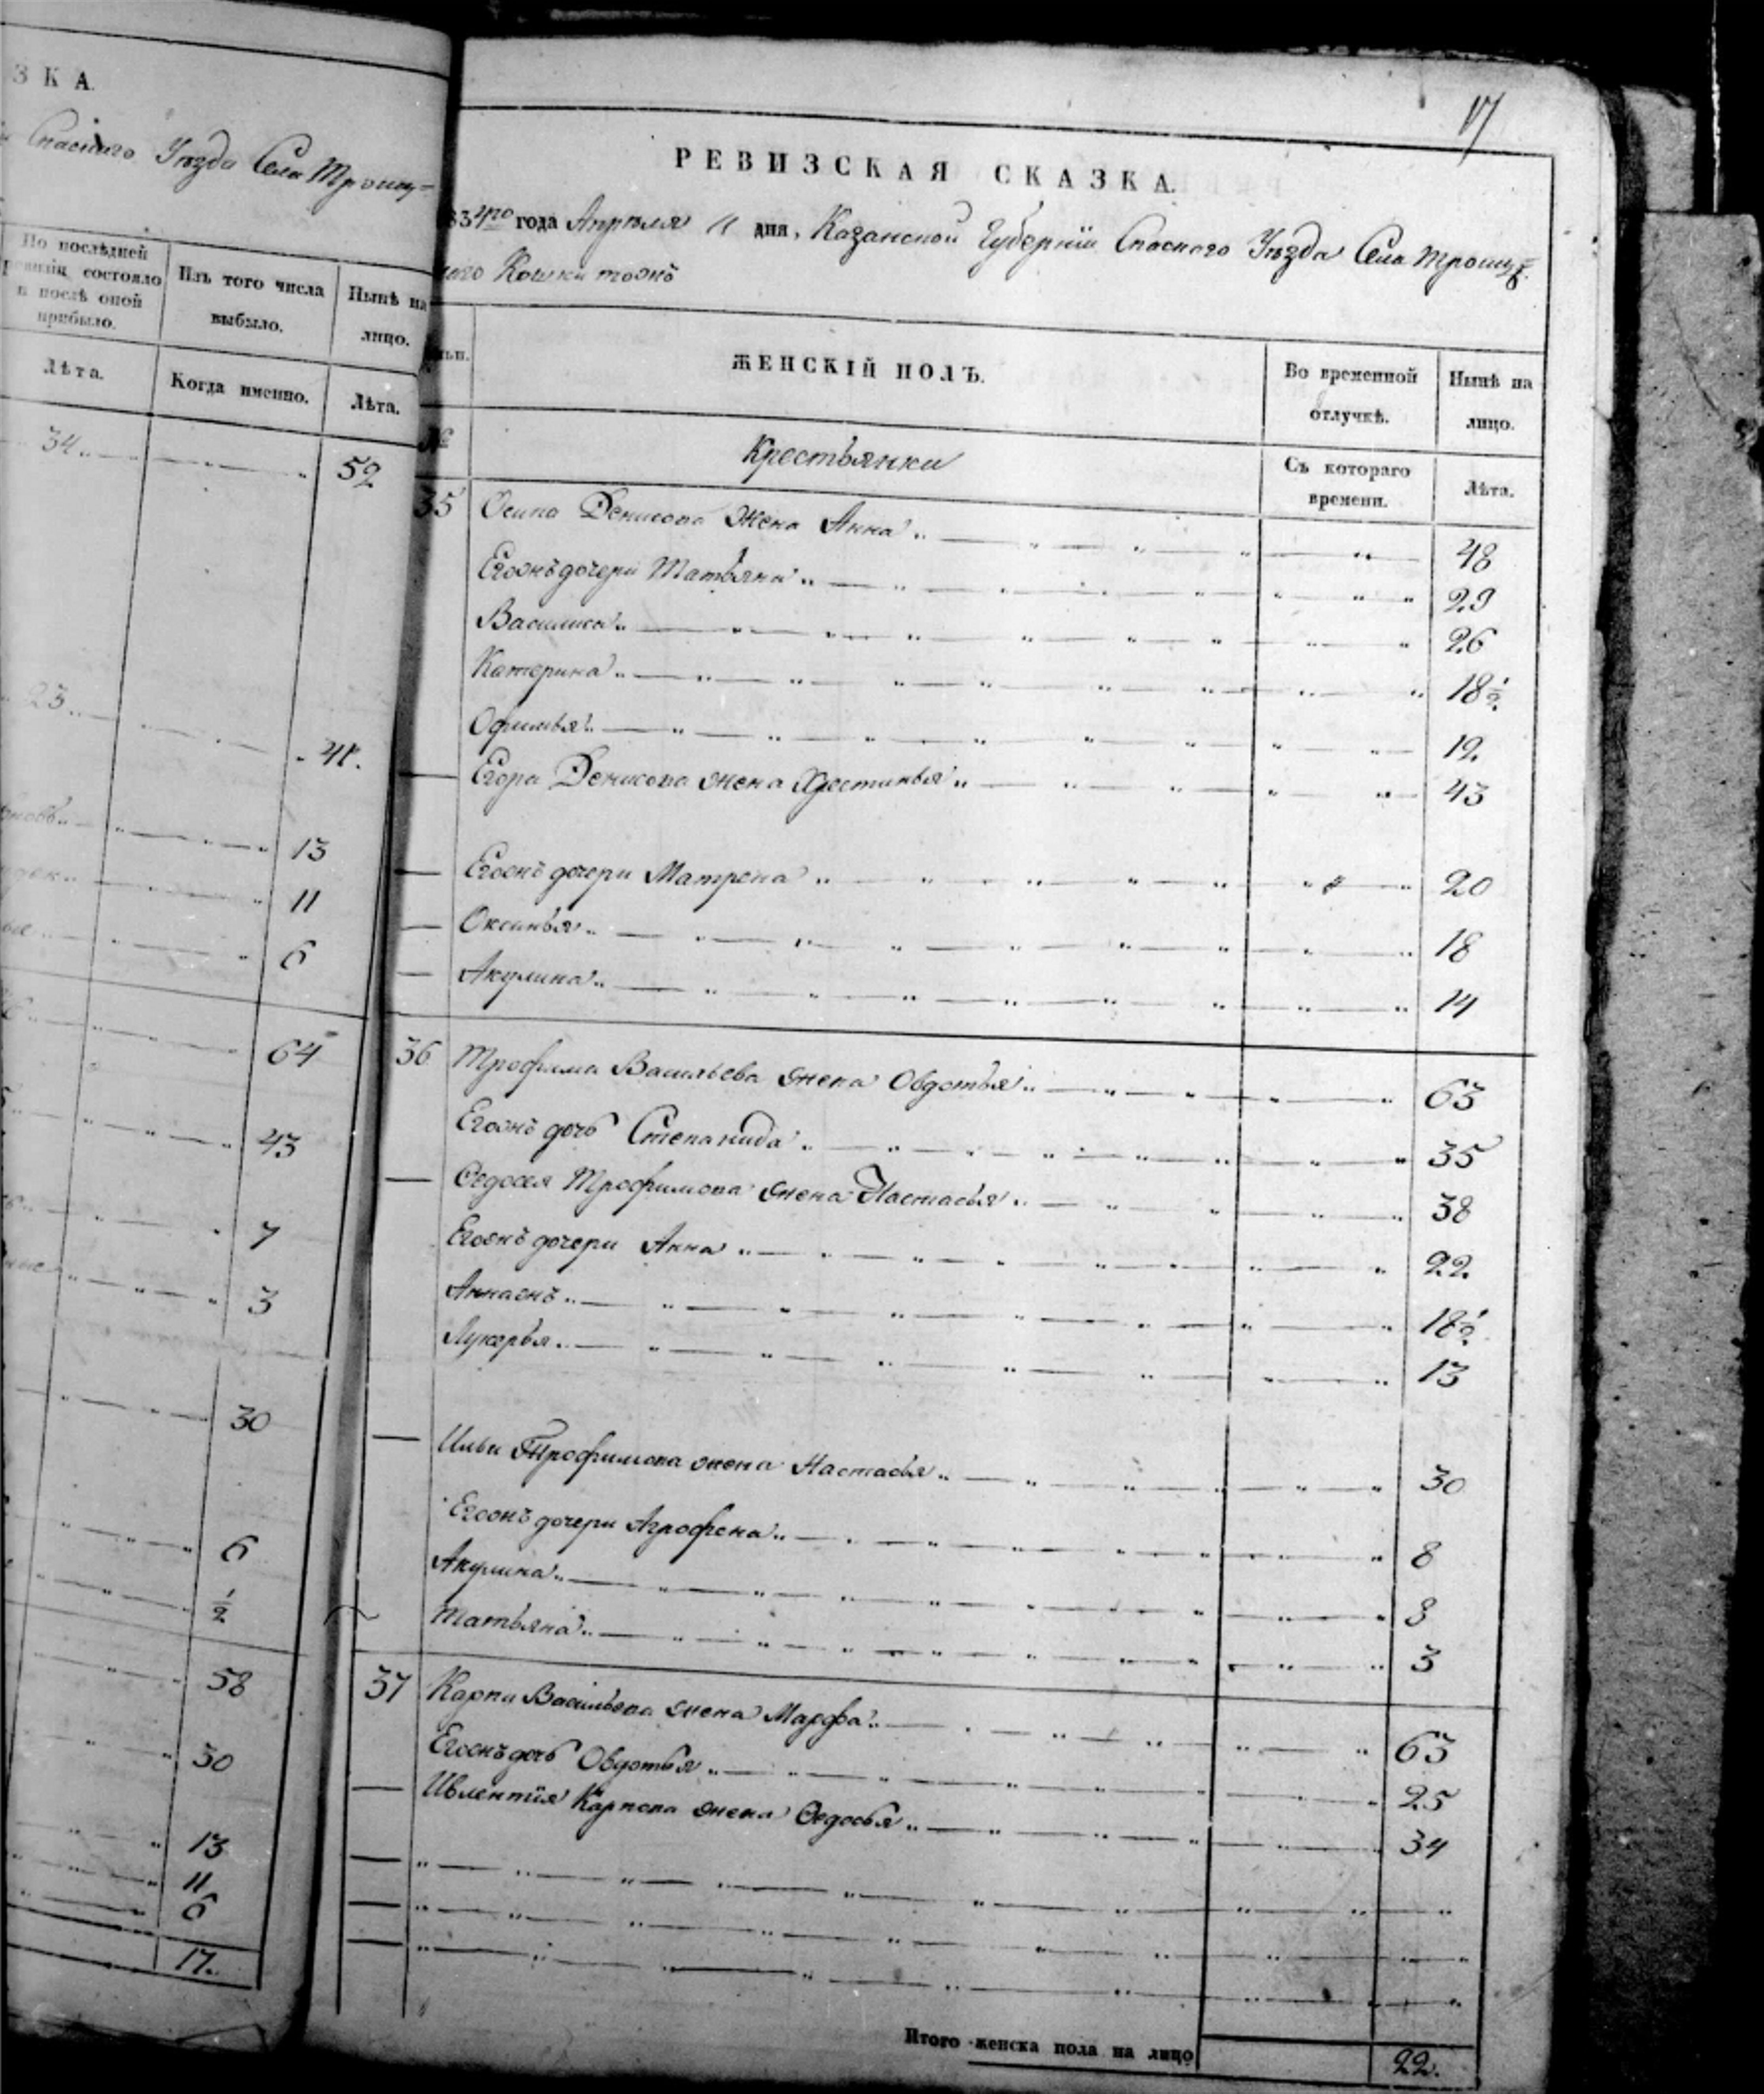 ЗКА.
Спаскаго Уѣзда Села Троиц=
По послѣдней
ревизіи состояло
и послѣ оной
прибыло.
Изъ того числа
выбыло.
Нынѣ на
лицо.
Лѣта.
Когда именно.
Лѣта.
34
52
23
41.
13
11
6
64
43
7
3
30
6
1/2
58
30
13
11
6
17.
17
РЕВИЗСКАЯ СКАЗКА.
834го года Апрѣля 11 дня, Казанской Губерніи Спаскаго Уѣзда Села Троиц=
Кошки тожъ
ЖЕНСКІЙ ПОЛЪ.
Во временной
отлучкѣ.
Нынѣ на
лицо.
№
Крестьянки
Съ котораго
времени.
Лѣта.
35 Осипа Денисова жена Анна 48
Егожъ дочери Татьяна 29
Василиса 26
Катерина 18 1/2
Офимья 12
Егора Денисова жена Хрестинья 43
Егожъ дочери Матрена 20
Оксинья 18
Акулина 14
36 Трофима Васильева жена Овдотья 63
Егожъ дочь Степанида 35
Федосея Трофимова жена Настасья 38
Егожъ дочери Анна 22
Аннажъ 18 1/2
Лукерья 13
Ильи Трофимова жена Настасья 30
Егожъ дочери Агрофена 8
Акулина 8
Татьяна 3
37 Карпа Васильева жена Марфа 63
Егожъ дочь Овдотья 25
Ивлентія Карпова жена Федосья 34
Итого женска пола на лицо 22.